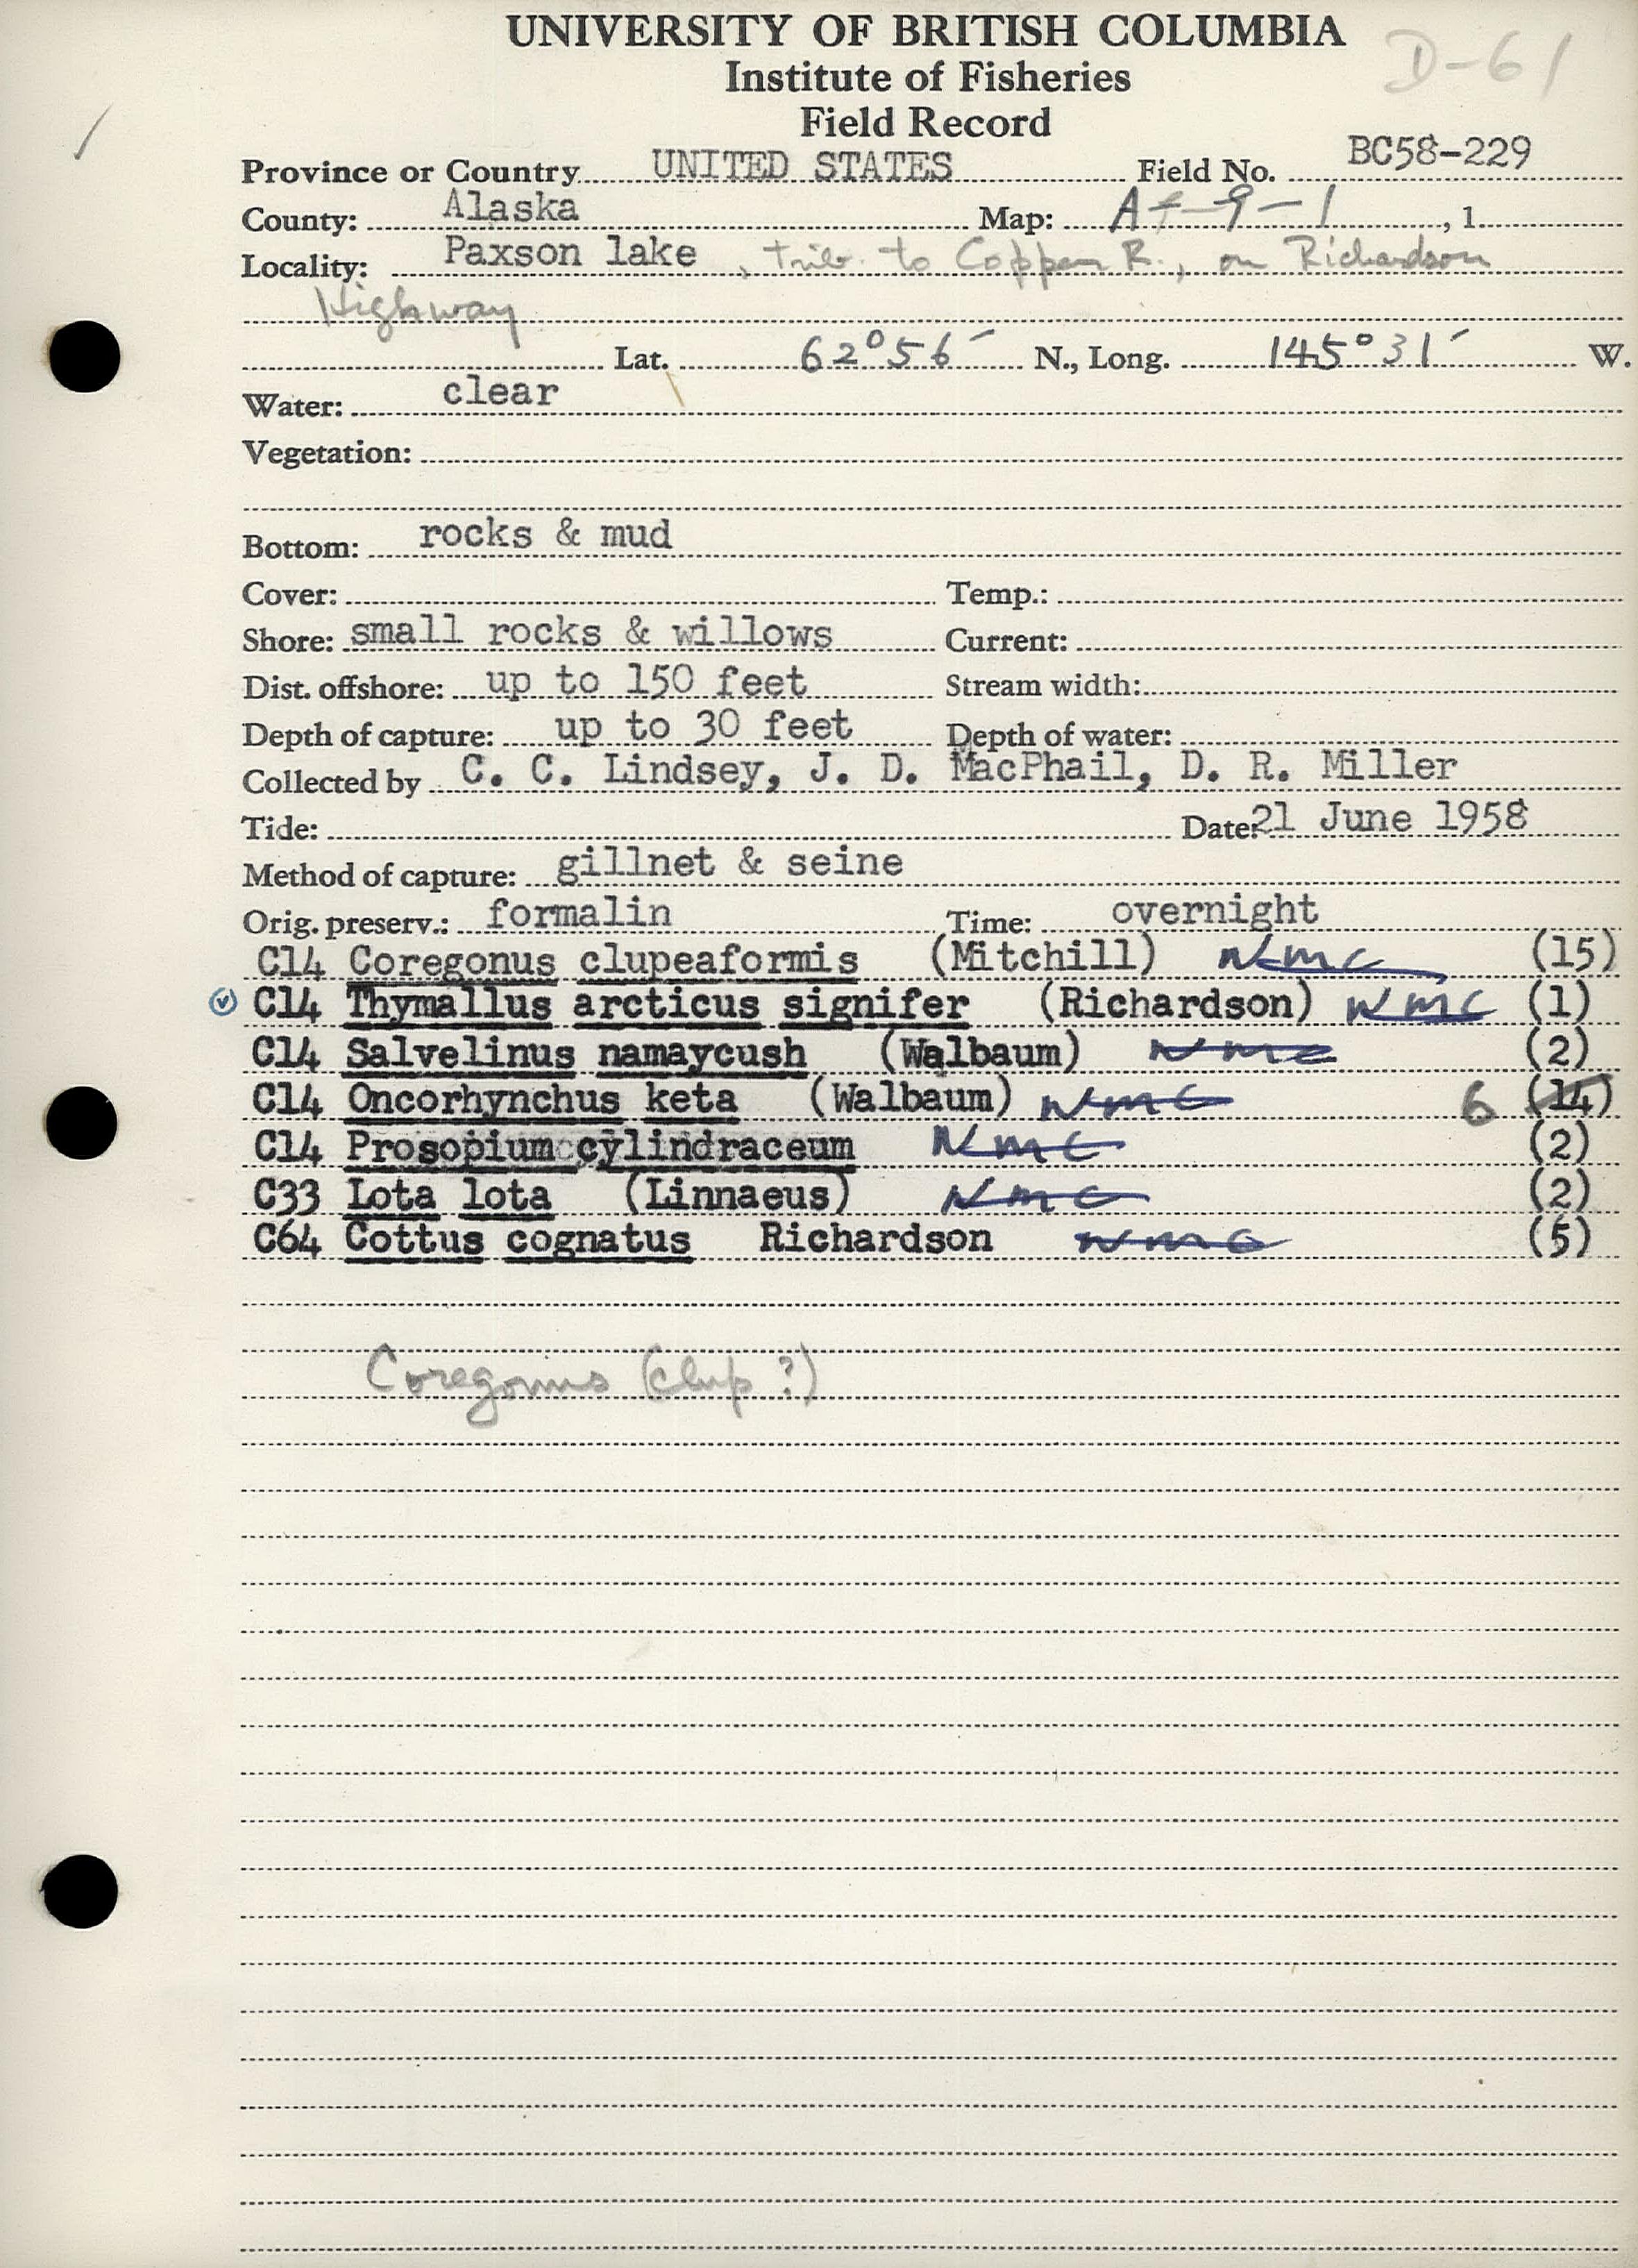 UNIVERSITY OF BRITISH COLUMBIA
D-61
Institute of Fisheries
Field Record
Province or Country UNITED STATES Field No. BC58-229
County: Alaska Map: Af-9-1, 1
Locality: Paxson lake, trib. to Copper R., on Richardson
Highway
Lat. 62°56′ N., Long. 145°31′ W.
Water: clear
Vegetation:
Bottom: rocks & mud
Cover: Temp.:
Shore: small rocks & willows Current:
Dist. offshore: up to 150 feet Stream width:
Depth of capture: up to 30 feet Depth of water:
Collected by C. C. Lindsey, J. D. MacPhail, D. R. Miller
Tide: Date: 21 June 1958
Method of capture: gillnet & seine
Orig. preserv.: formalin Time: overnight
C14 Coregonus clupeaformis (Mitchill) NMC (15)
C14 Thymallus arcticus signifer (Richardson) NMC (1)
C14 Salvelinus namaycush (Walbaum) NMC (2)
C14 Oncorhynchus keta (Walbaum) NMC 6 (14)
C14 Prosopium cylindraceum NMC (2)
C33 Lota lota (Linnaeus) NMC (2)
C64 Cottus cognatus Richardson NMC (5)
Coregonus (clup ?)